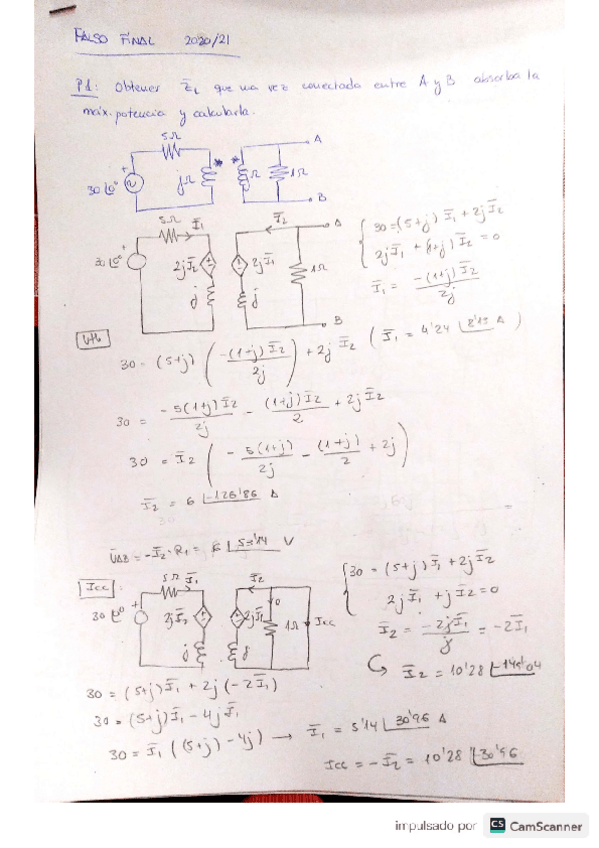 FALSO FINAL 2020/21
P1: Obtener Z̄L que una vez conectada entre A y B absorba la
máx. potencia y calcularla.
5Ω
A
30 ∠0° + jΩ * * jΩ 1Ω
B
5Ω Ī1 Ī2 A
30 ∠0° + 2jĪ2 2jĪ1 1Ω
j j
B
{ 30 = (5+j) Ī1 + 2j Ī2
2j Ī1 + (1+j) Ī2 = 0
Ī1 = -(1+j) Ī2 / 2j
Uth
30 = (5+j) ( -(1+j) Ī2 / 2j ) + 2j Ī2 ( Ī1 = 4'24 ∠8'13 A )
30 = -5(1+j) Ī2 / 2j - (1+j) Ī2 / 2 + 2j Ī2
30 = Ī2 ( - 5(1+j) / 2j - (1+j) / 2 + 2j )
Ī2 = 6 ∠-126'86 A
ŪAB = -Ī2 · R1 = 6 ∠53'14 V
Icc
5Ω Ī1 Ī2
30 ∠0° + 2jĪ2 2jĪ1 0 1Ω Icc
j j
{ 30 = (5+j) Ī1 + 2j Ī2
2j Ī1 + j Ī2 = 0
Ī2 = -2j Ī1 / j = -2 Ī1
Ī2 = 10'28
30 = (5+j) Ī1 + 2j (-2 Ī1)
30 = (5+j) Ī1 - 4j Ī1
30 = Ī1 ( (5+j) - 4j ) → Ī1 = 5'14 ∠30'96 A
Icc = -Ī2 = 10'28 ∠30'96
impulsado por CS CamScanner